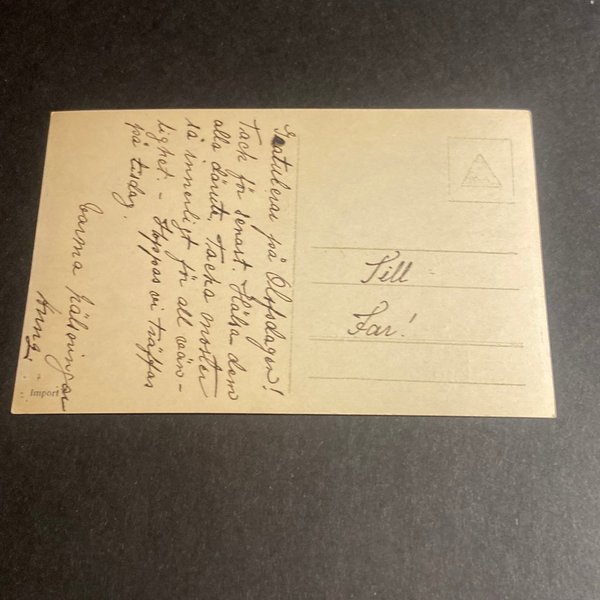 Gratulerar på Olofsdagen!
Tack för senast. Hälsa dem
alla därute. Tacka moster
så innerligt för all vän-
lighet. - Hoppas vi träffas
på tisdag.
Varma hälsningar
Anna.
Till
Far!
Import